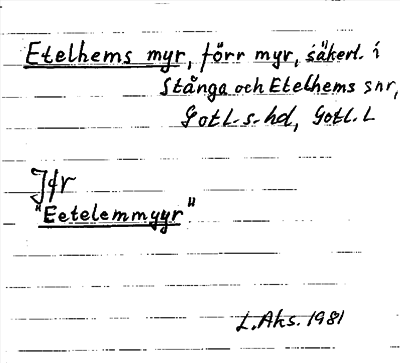 Etelhems myr, förr myr, säkerl. i
Stånga och Etelhems snr,
Gotl. s. hd, Gotl. L
Jfr
"Eetelemmyyr"
L. Aks. 1981